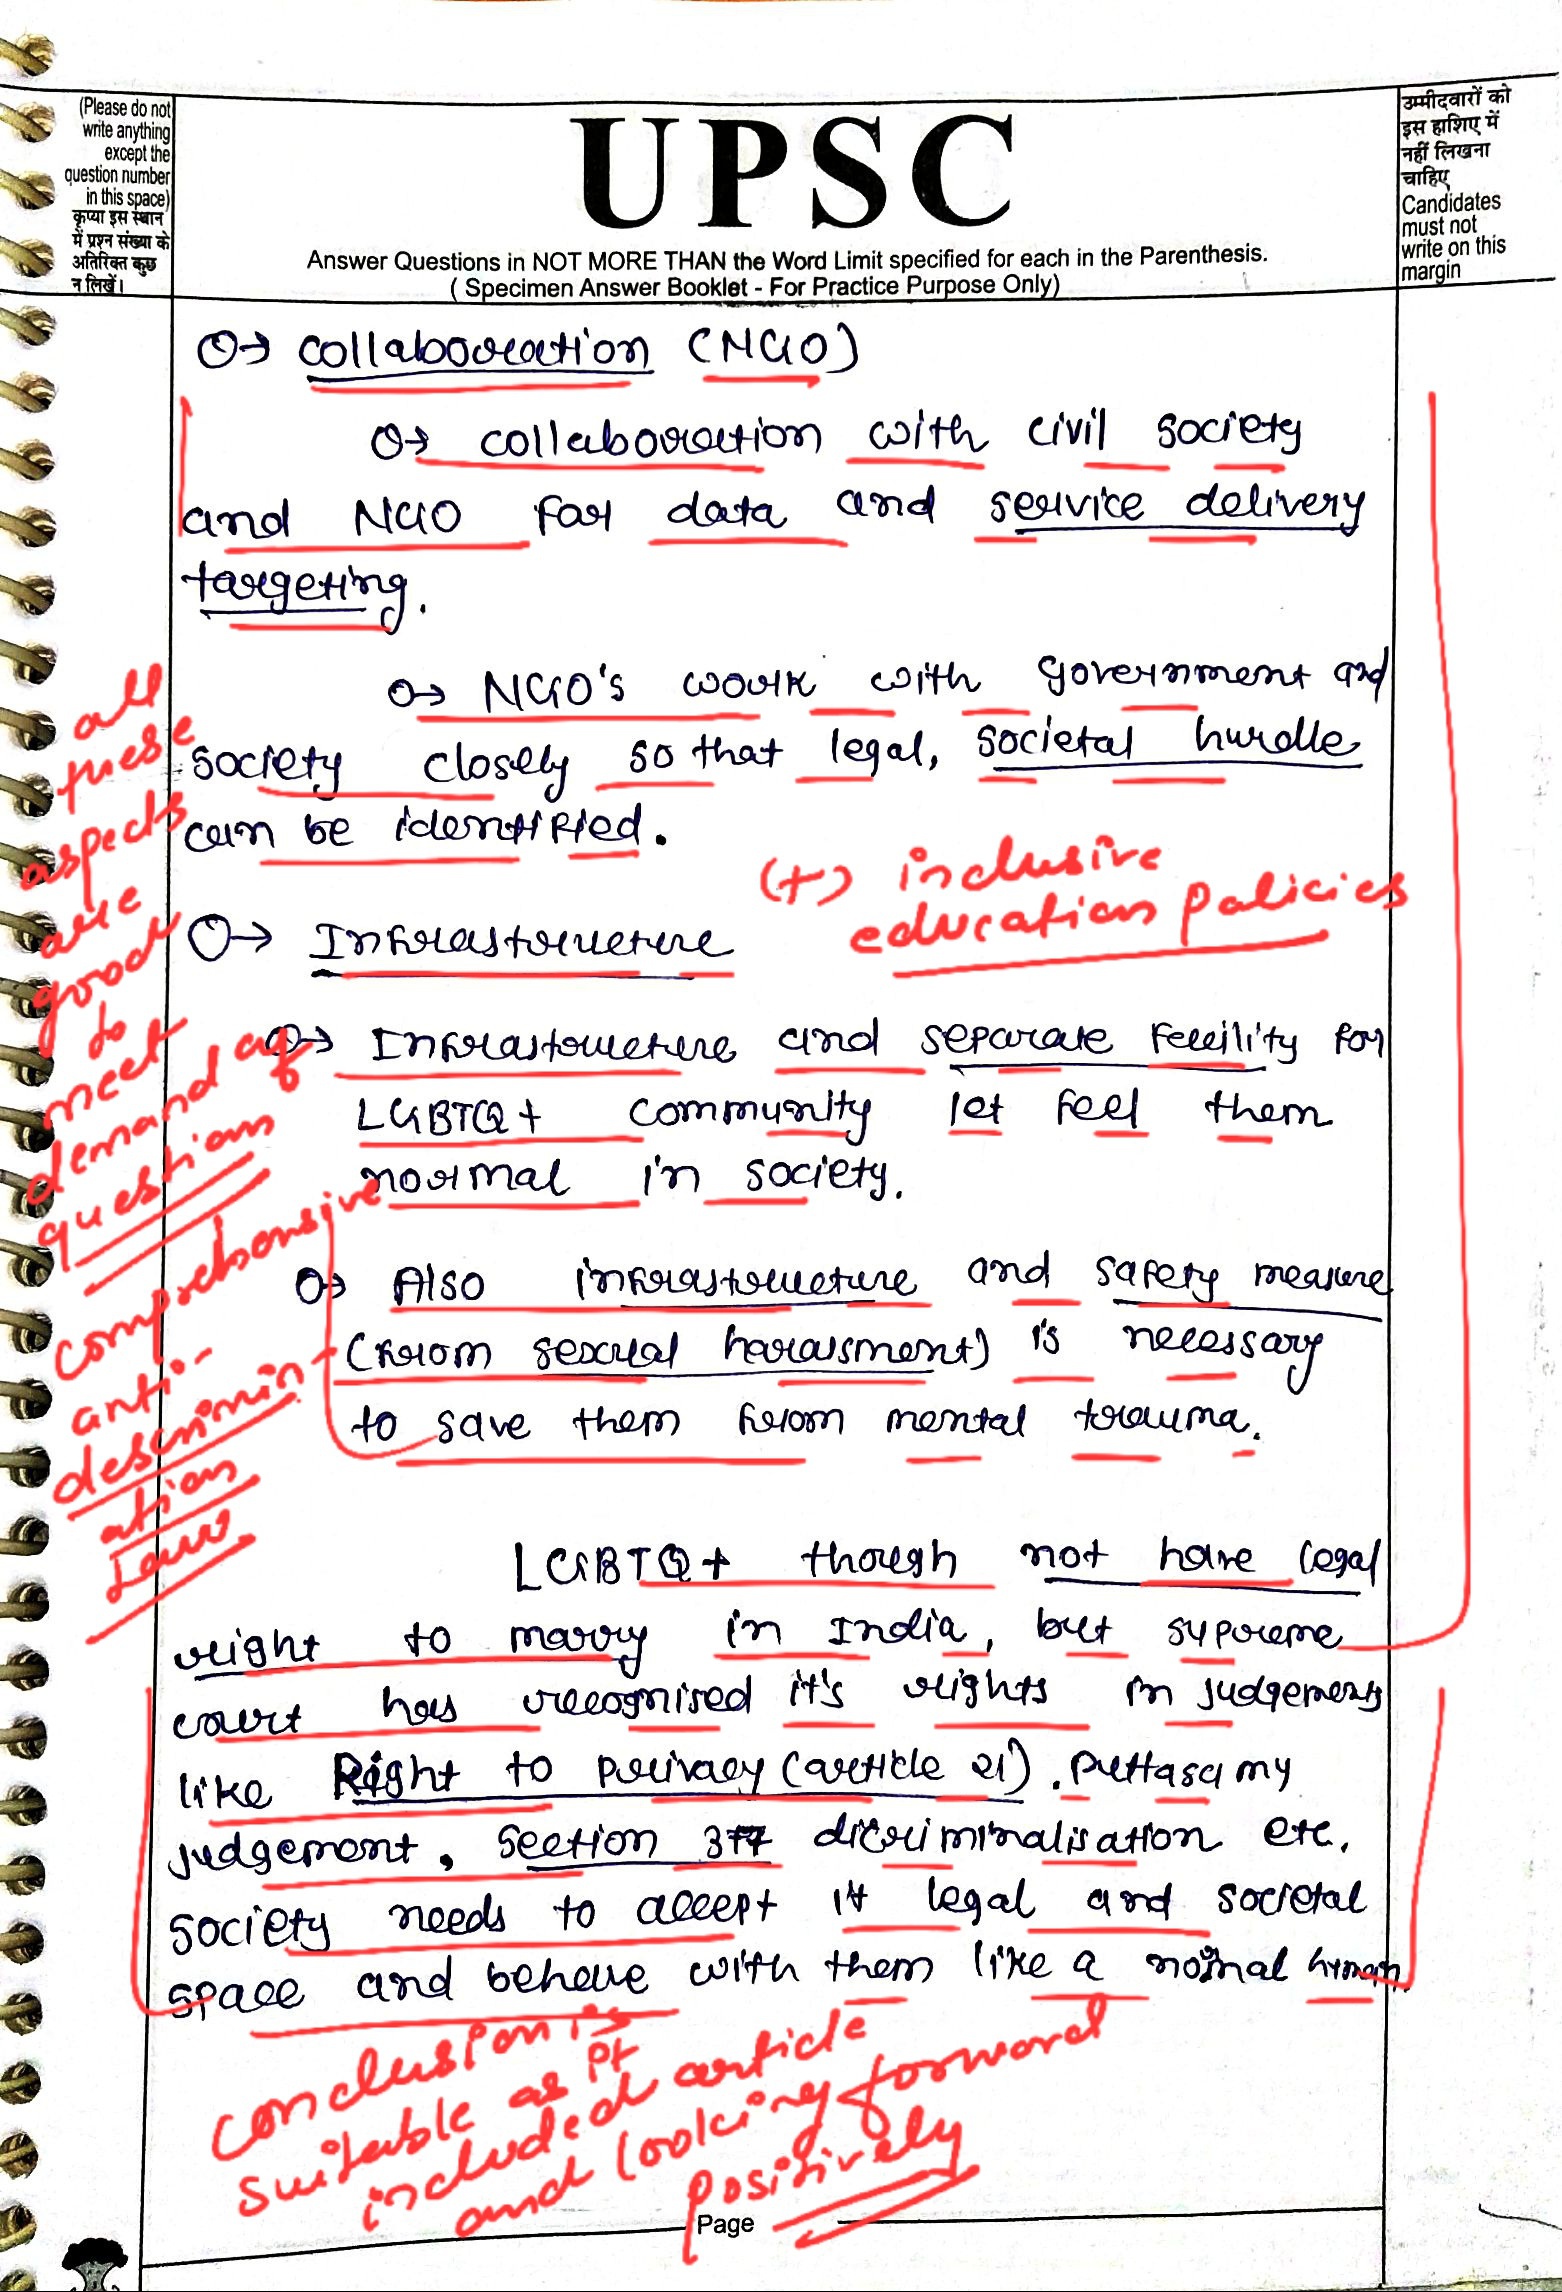 (Please do not
write anything
except the
question number
in this space)
कृप्या इस स्थान
में प्रश्न संख्या के
अतिरिक्त कुछ
न लिखें।
UPSC
Answer Questions in NOT MORE THAN the Word Limit specified for each in the Parenthesis.
( Specimen Answer Booklet - For Practice Purpose Only)
उम्मीदवारों को
इस हाशिए में
नहीं लिखना
चाहिए
Candidates
must not
write on this
margin
→ collaboration (NGO)
→ collaboration with civil society
and NGO for data and service delivery
targeting.
→ NGO's work with government and
society closely so that legal, societal hurdle
can be identified.
(+) inclusive
education policies
→ Infrastructure
→ Infrastructure and separate facility for
LGBTQ+ community let feel them
normal in society.
→ Also infrastructure and safety measure
(from sexual harassment) is necessary
to save them from mental trauma.
all
these
aspects
are
good
to
meet
demand of
questions
comprehensive
anti-
descrimin-
ation
Law
LGBTQ+ though not have legal
right to marry in India, but supreme
court has recognised it's rights in judgements
like Right to privacy (article 21). Puttasamy
judgement, section 377 dicriminalisation etc.
society needs to accept it legal and societal
space and behave with them like a normal human
conclusion is
suitable as pt
included article
and looking forward
positively
Page